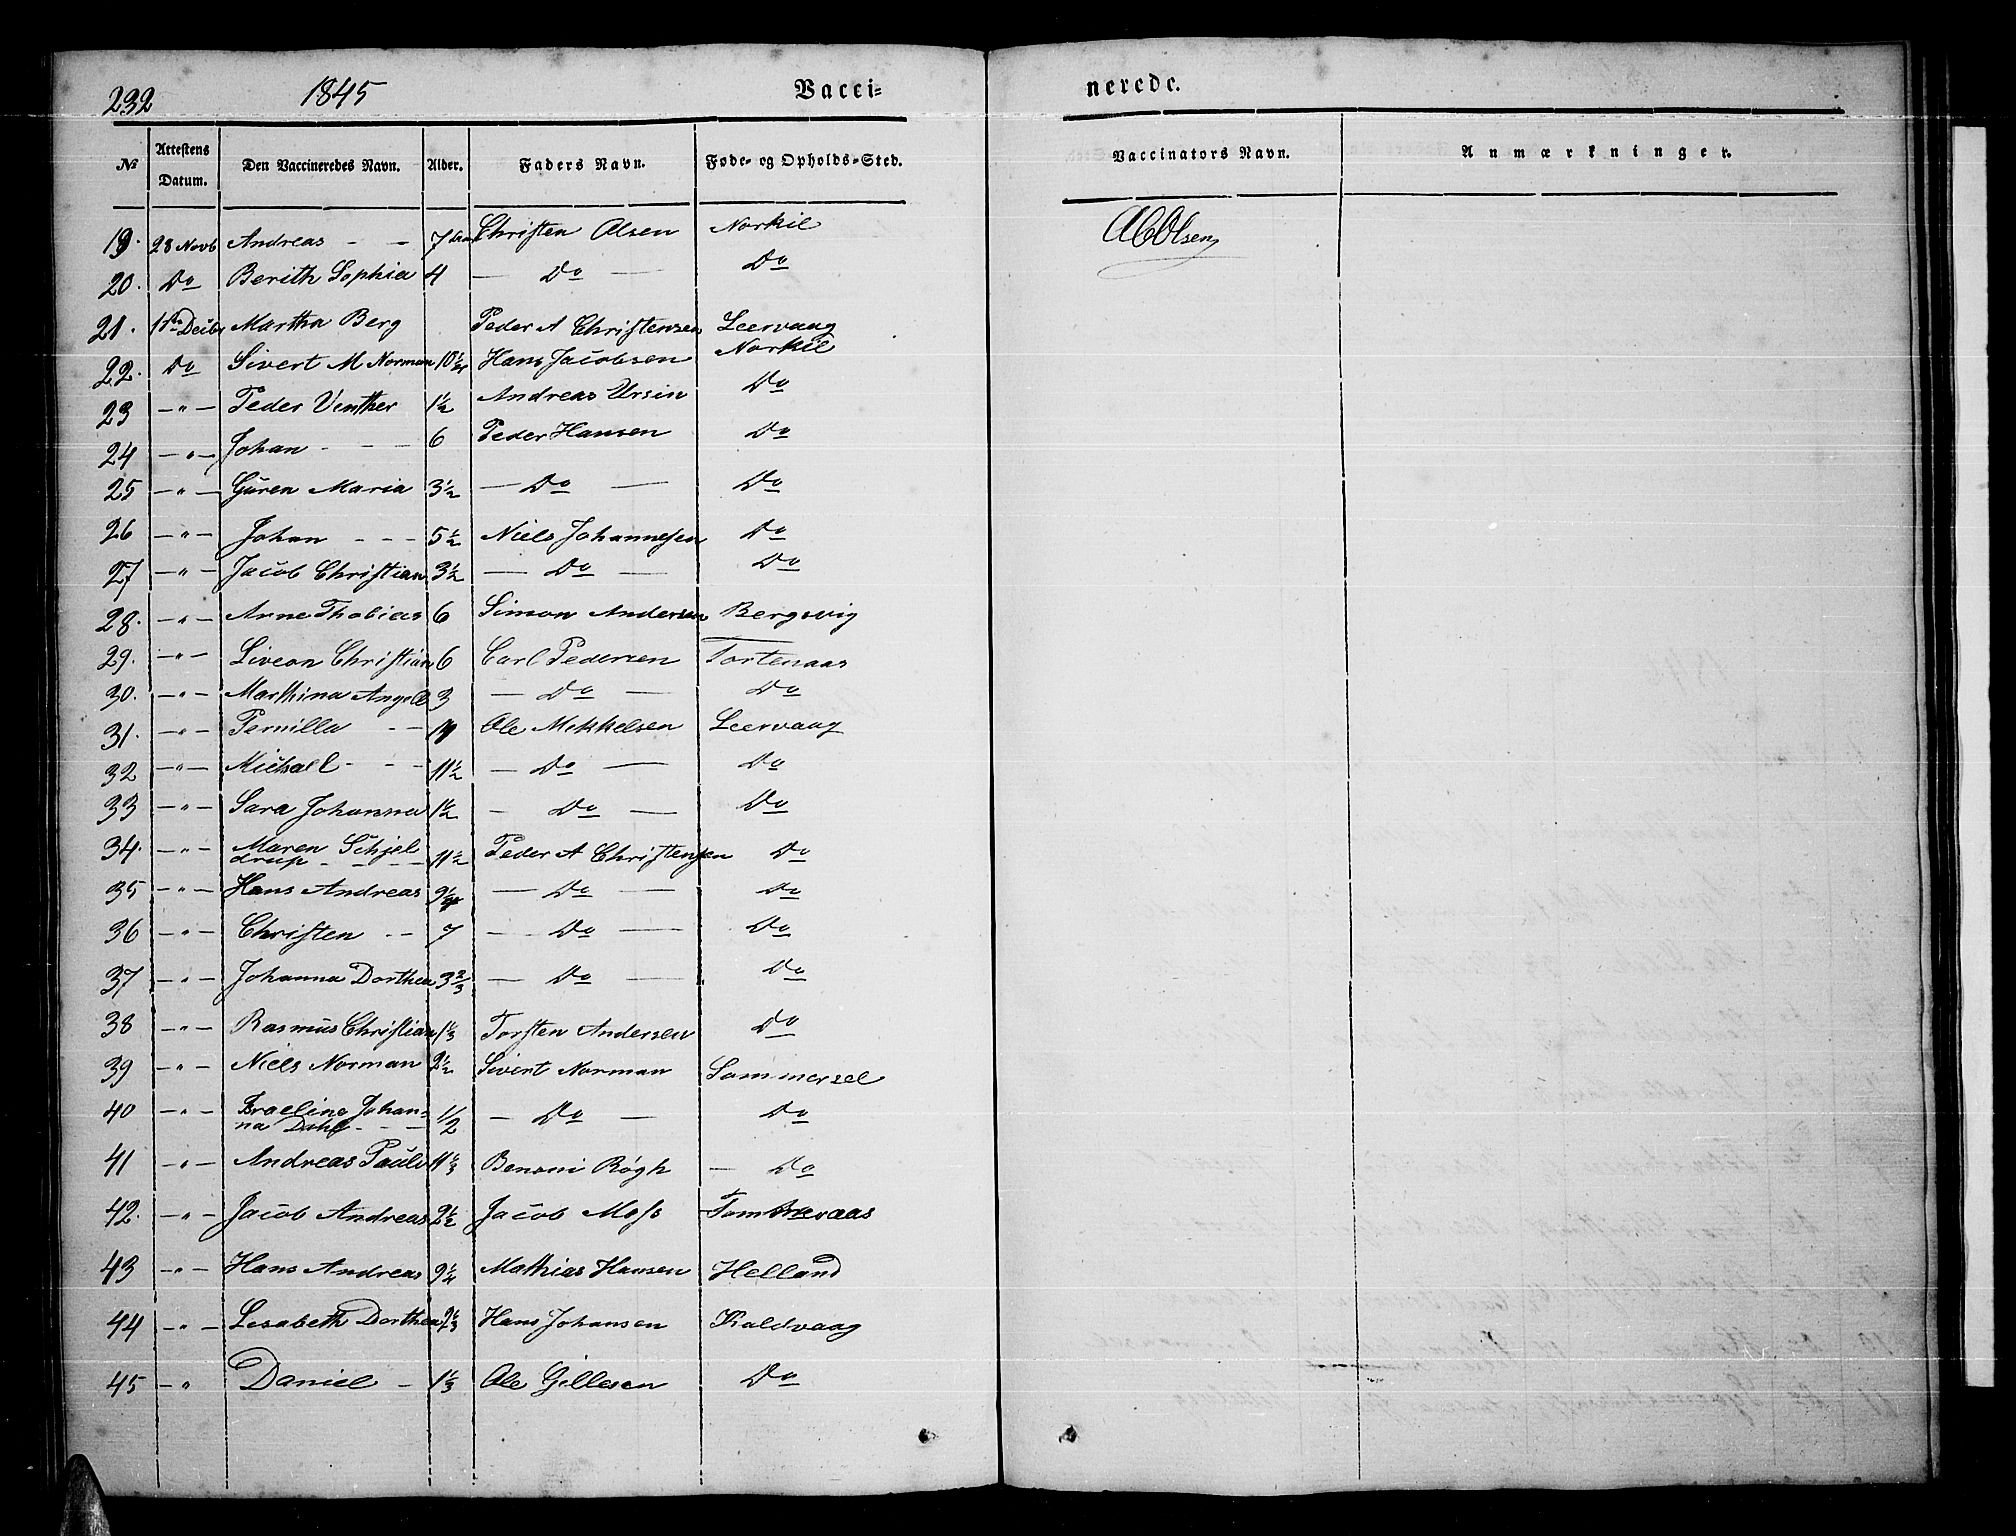 232 1845 Vacci- nerede.
No Attestens Datum. Den Vaccineredes Navn. Alder. Faders Navn. Føde- og Opholds-Sted. Vaccinators Navn. Anmærkninger.
19. 28 Novb Andreas - - 7 Christen Olsen Norkil Olsen
20. Do Berith Sophia 4 - Do - Do
21. Martha Berg Peder A Christensen Leervaag
22. Do Sivert M Norman 10 Hans Jacobsen Norkil
23 -"- Peder Venther 1½ Andreas Ursin Do
24 -"- Johan - - - 6 Peder Hansen Do
25 -"- Guren Maria 3½ - Do - Do
26 -"- Johan - - - 5½ Niels Johannesen Do
27 -"- Jacob Christian 3½ - Do - Do
28. -"- Anne Thobias 6 Simon Andersen Bergsvig
29. -"- Liveon Christian 6 Carl Pedersen Tortenaas
30. -"- Marthina Angell 3 - Do - Do
31. -"- Pernilla - - Ole Mekkelsen Leervaag
32 -"- Michael - - - 11½ - Do - Do
33 -"- Sara Johanna 1½ - Do - Do
34. -"- Maren Schjel
drup - - - - 11½ Peder A Christensen Do
35 -"- Hans Andreas - Do - Do
36 -"- Christen - - 7 - Do - Do
37 -"- Johanna Dorthea 3⅔ - Do - Do
38 -"- Rasmus Christian 1⅓ Torsten Andersen Do
39 -"- Niels Norman 2½ Sivert Norman Sommersel
40 -"- Johan-
na Dahl - - - 1/2 - Do - Do
41 -"- Andreas Paulv 11⅓ Benoni Røgh - Do
42. -"- Jacob Andreas 2½ Jacob Moss
43 -"- Hans Andreas 9¼ Mathias Hansen Helland
44 -"- Lesabeth Dorthea Hans Johansen Kaldvaag
45 -" Daniel - 1⅓ Ole Gillesen Do